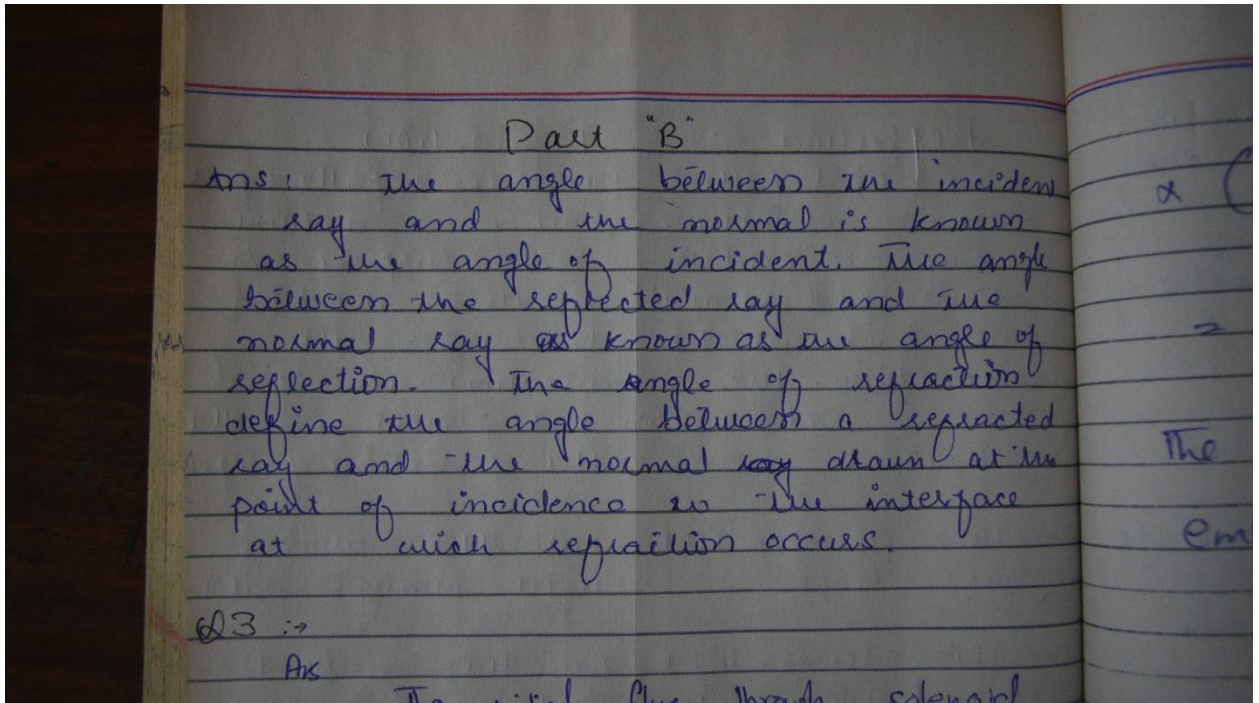 Part "B"
Ans: The angle between the inciden
ray and the normal is known
as the angle of incident. The angle
between the reflected ray and the
normal ray as known as the angle of
reflection. The angle of refraction
define the angle between a refracted
ray and the normal drawn at the
point of incidence to the interface
at wich refraction occurs.
Q3 :→
Ans
The initial flux through solenoid
α (
=
The
em